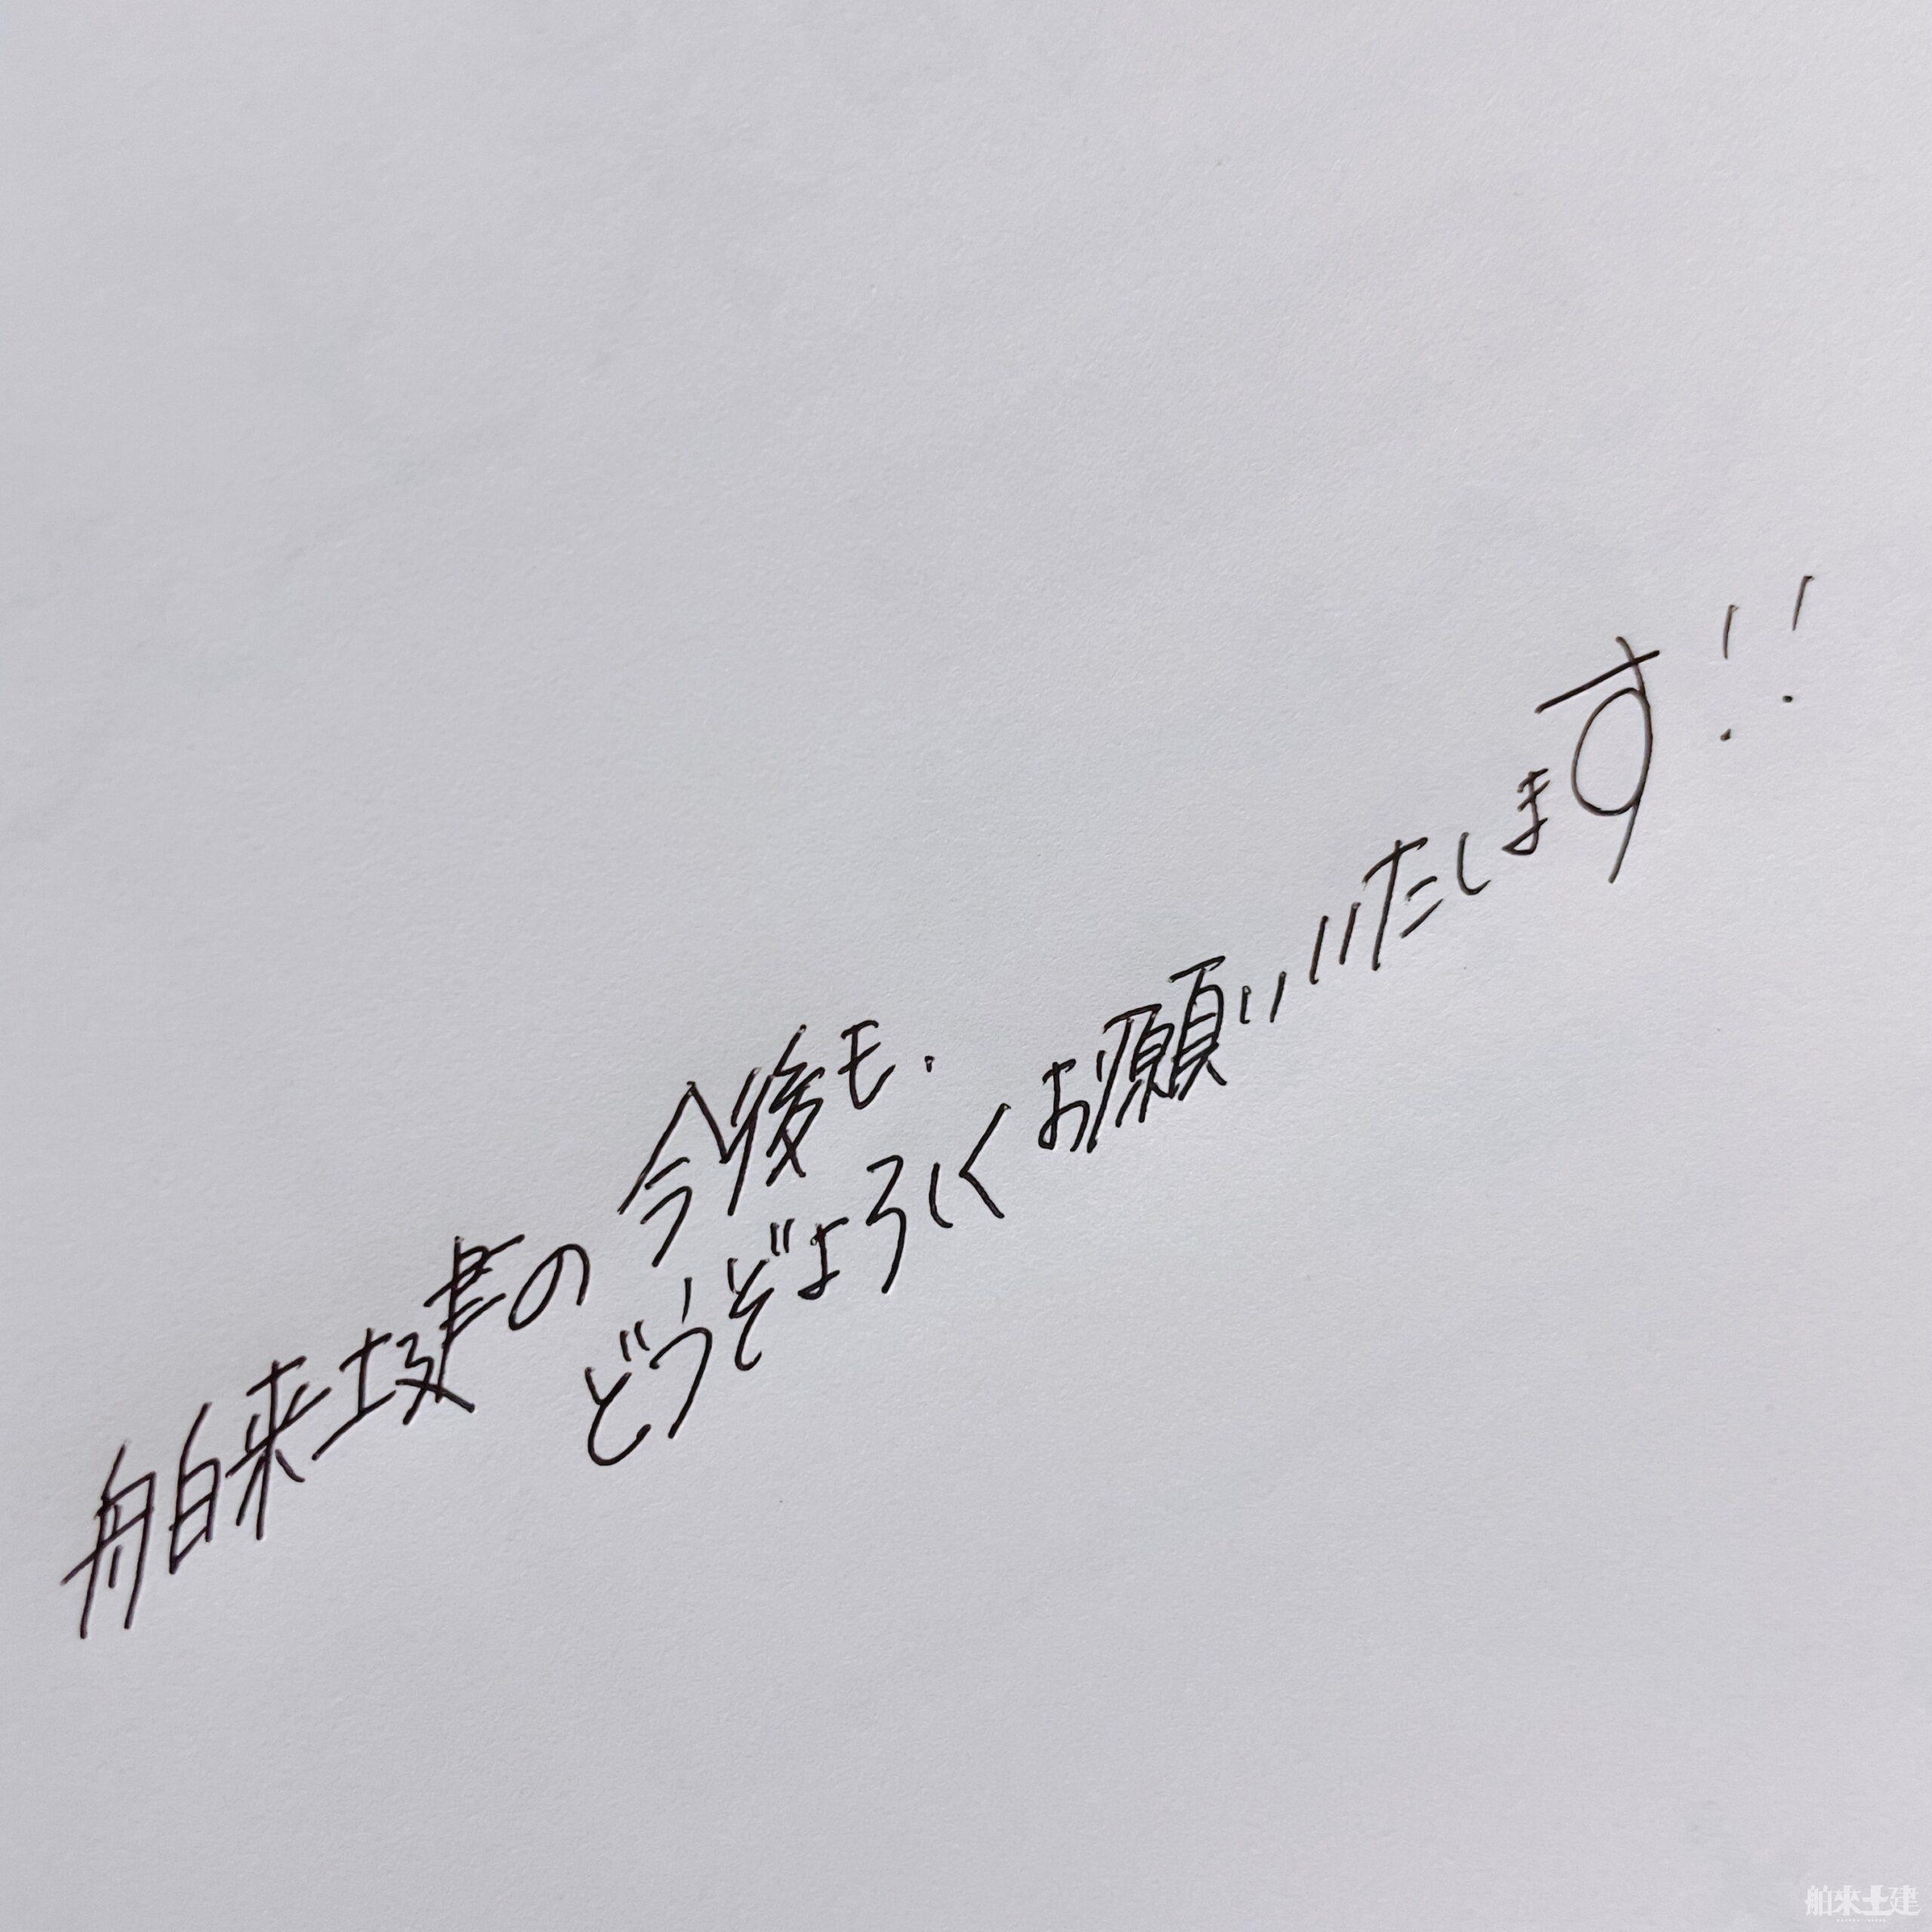 舶来土建の今後も.
どうぞよろしくお願いいたします!!
舶來土建